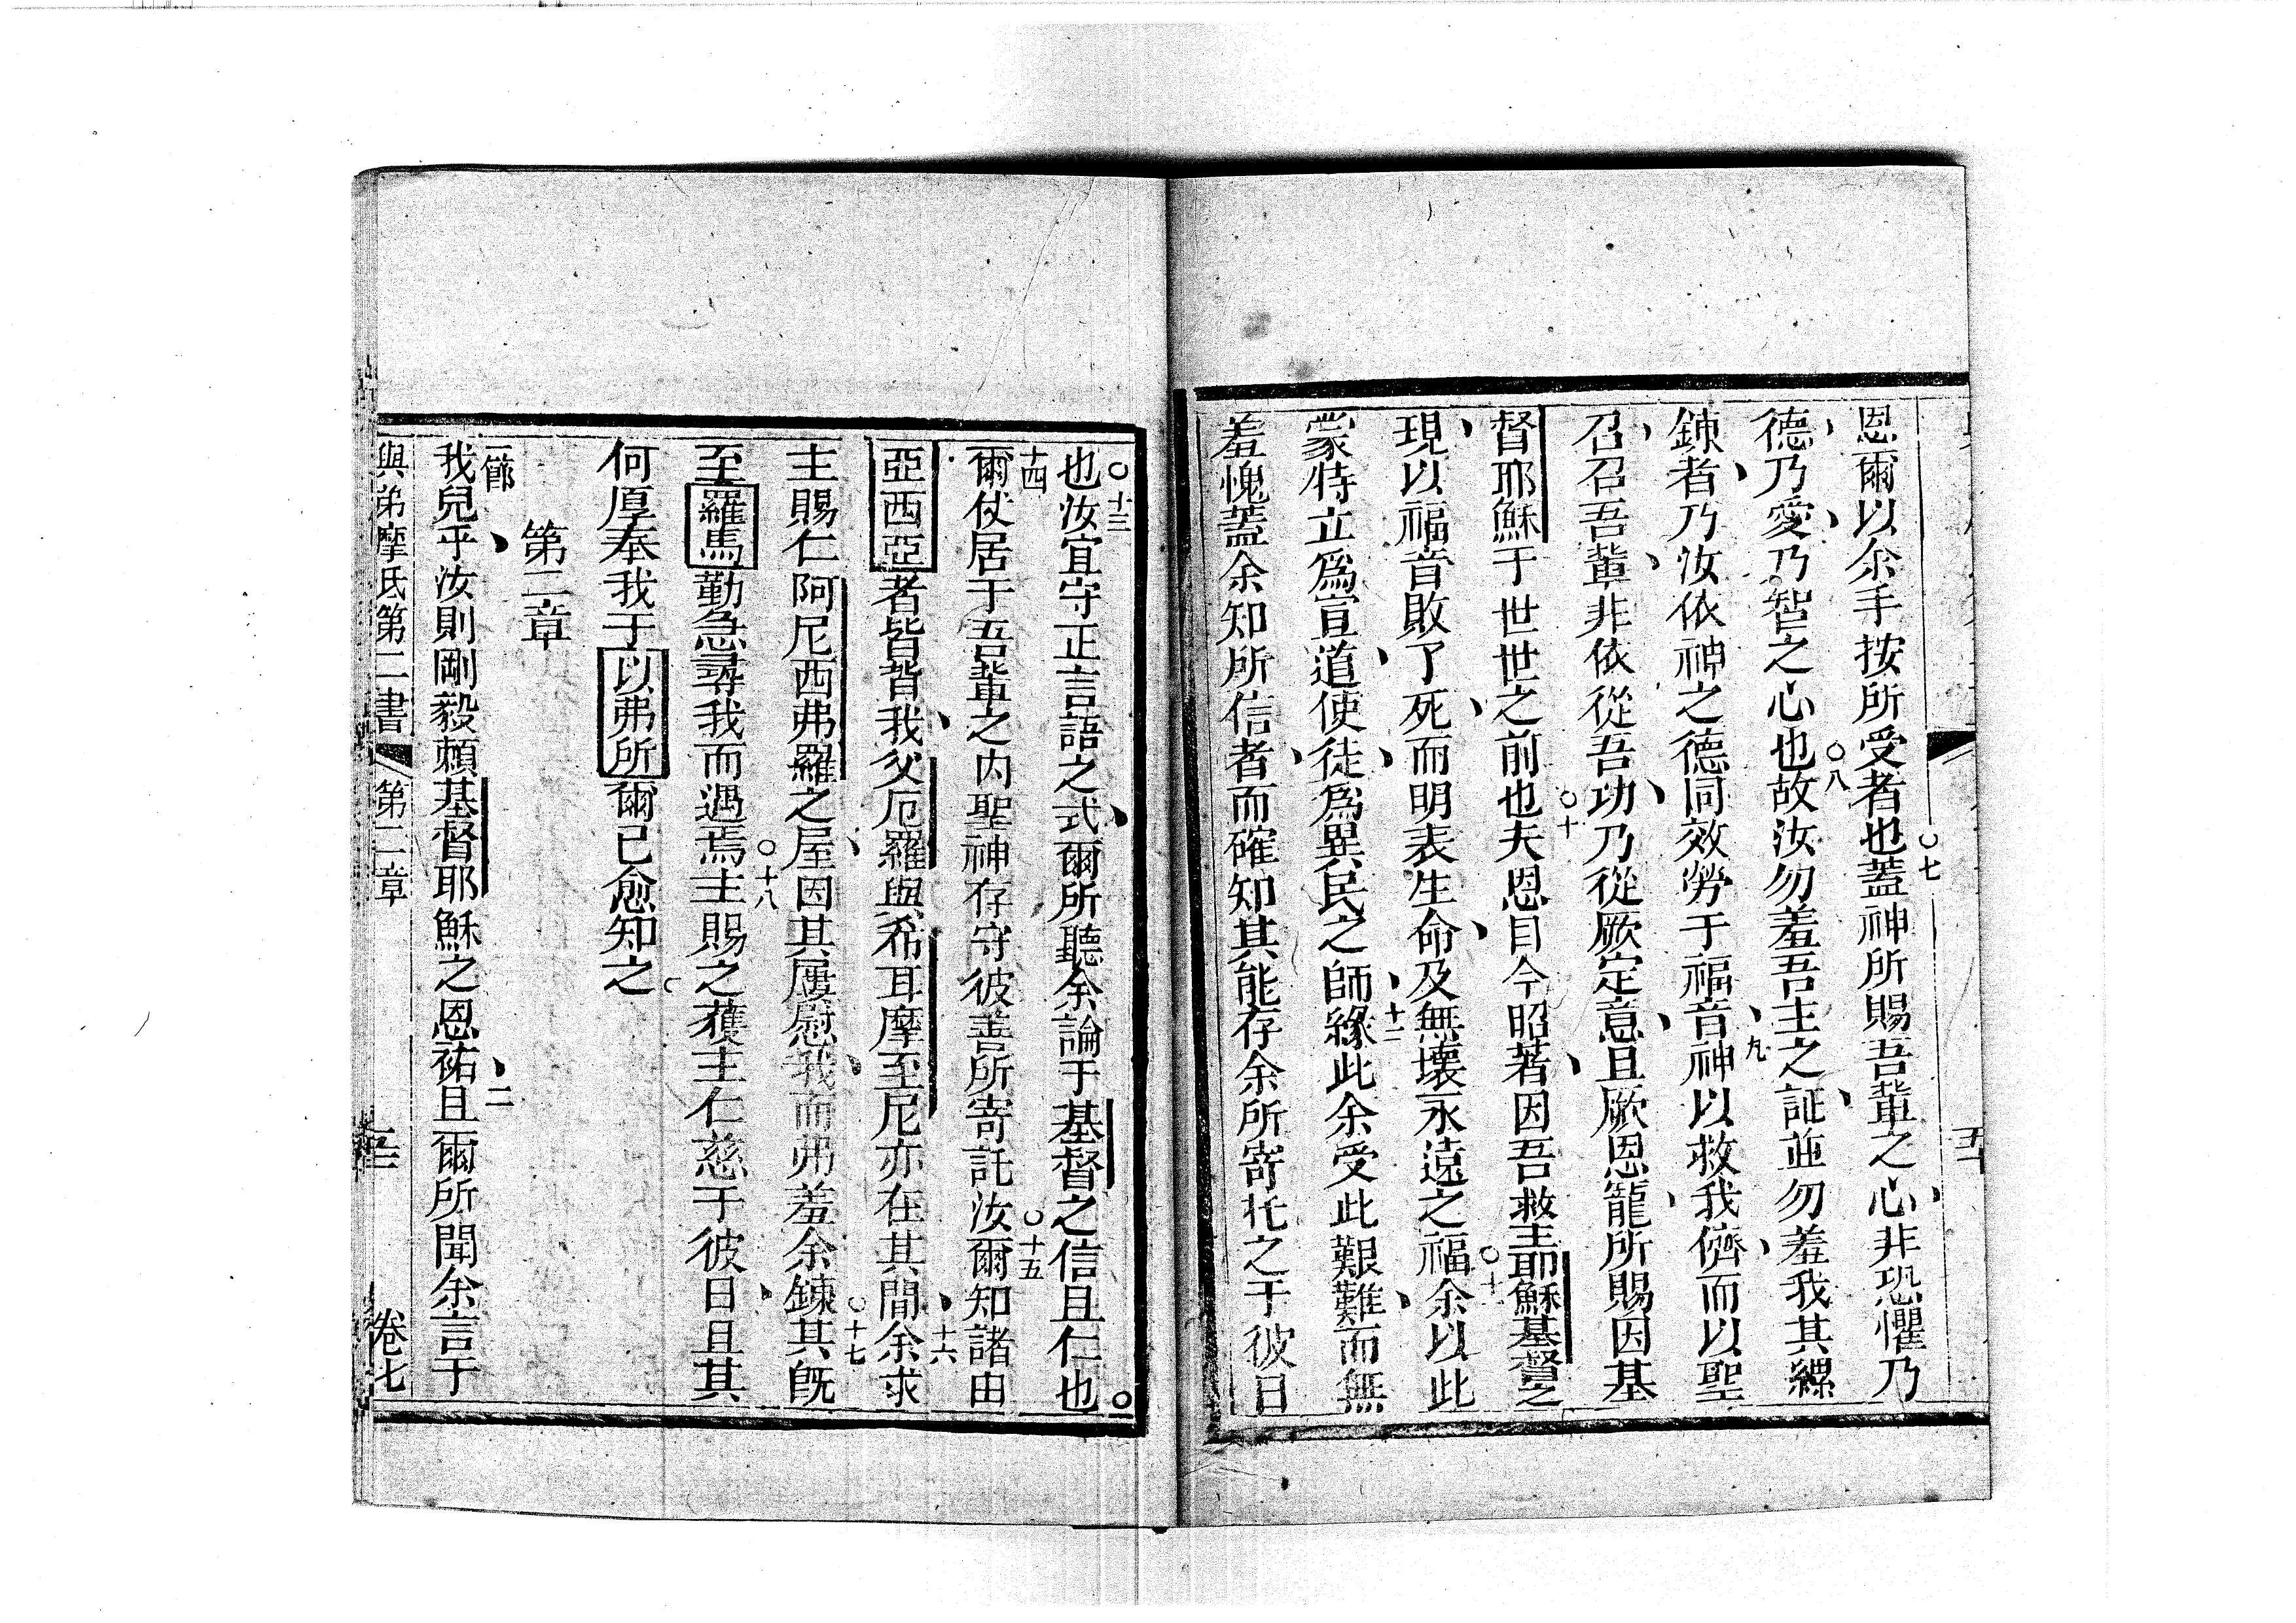 恩爾以余手按所受者也蓋神所賜吾輩之心非恐懼乃
〇七
德乃愛乃智之心也故汝勿羞吾主之証並勿羞我其縲
〇八
錬者乃汝依神之德同效勞于福音神以救我儕而以聖
九
召召吾輩非依從吾功乃從厥定意且厥恩籠所賜因基
督耶穌于世世之前也夫恩目今昭著因吾救主耶穌基督之
〇十
現以福音敗了死而明表生命及無壞永遠之福余以此
〇十
蒙特立為宣道使徒為異民之師緣此余受此艱難而無
十二
羞愧蓋余知所信者而確知其能存余所寄托之于彼日
也汝宜守正言語之式爾所聽余論于基督之信且仁也
〇十三
爾仗居于吾輩之內聖神存守彼善所寄託汝爾知諸由
十四
〇十五
亞西亞者皆背我父厄羅與希耳摩至尼亦在其間余求
十六
主賜仁阿尼西弗羅之屋因其屢慰我而弗羞余錬其既
〇十七
至羅馬勤急尋我而遇焉主賜之獲主仁慈于彼日且其
〇十八
何厚奉我于以弗所爾已愈知之
第二章
一節
我兒乎汝則剛毅賴基督耶穌之恩祐且爾所聞余言于
二
與弟摩氏第二書 第二章 卷七